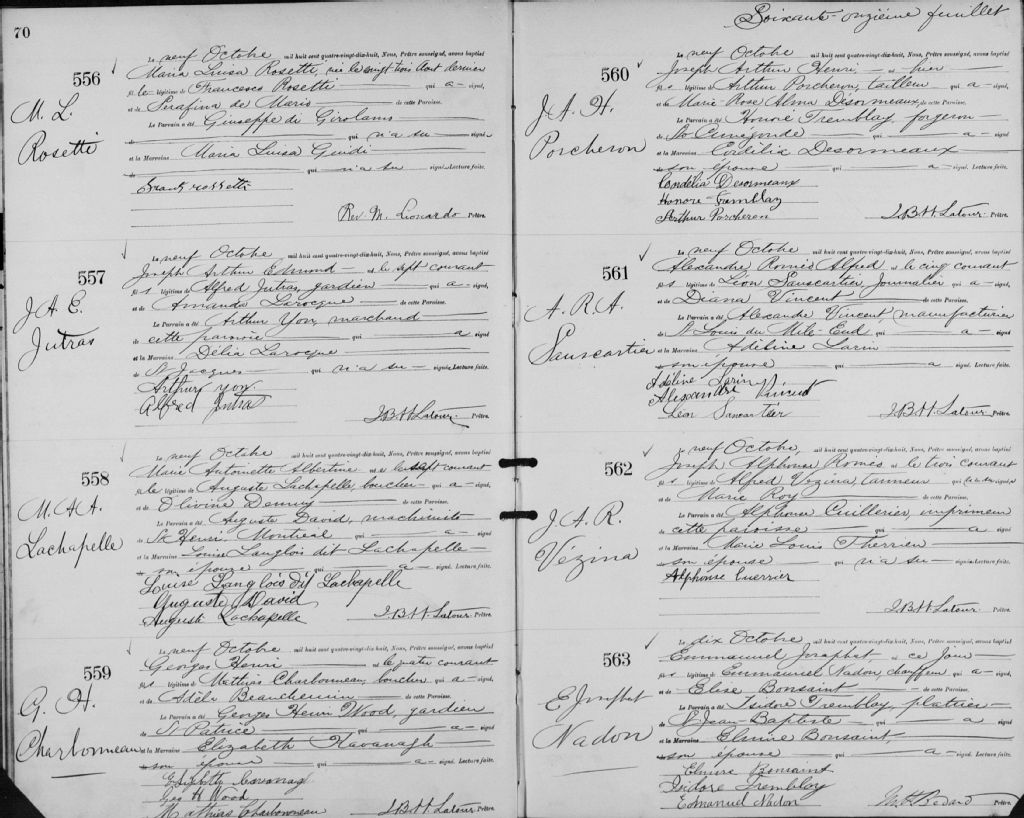 70
556
M. L.
Rosetti
Le neuf Octobre mil huit cent quatre-vingt-dix-huit, Nous, Prêtre soussigné, avons baptisé
Maria Luisa Rosette, née le vingt trois Aout dernier
fille légitime de Francesco Rosetti qui a signé,
et de Serafina de Maris de cette Paroisse.
Le Parrain a été Giuseppe di Girolamo
qui n'a su signé
et la Marraine Maria Luisa Guidi
qui n'a su signé. Lecture faite.
Rev. M. Leonardo Prêtre.
557
J. A. E.
Jutras
Le neuf Octobre mil huit cent quatre-vingt-dix-huit, Nous, Prêtre soussigné, avons baptisé
Joseph Arthur Edmond né le sept courant
fils légitime de Alfred Jutras, gardien qui a signé,
et de Amanda Larocque de cette Paroisse.
Le Parrain a été Arthur Yon, marchand
de cette paroisse qui a signé
et la Marraine Délia Larocque
de St Jacques qui n'a su signé. Lecture faite.
Arthur Yon.
Alfred Jutras
J.B.H. Latour. Prêtre.
558
M. A. A.
Lachapelle
Le neuf Octobre mil huit cent quatre-vingt-dix-huit, Nous, Prêtre soussigné, avons baptisé
Marie Antoinette Albertine née le sept courant
fille légitime de Auguste Lachapelle, boucher qui a signé,
et de Olivine Demny de cette Paroisse.
Le Parrain a été Auguste David, machiniste
de St Henri, Montreal qui a signé
et la Marraine Louise Langlois dit Lachapelle
son épouse qui a signé. Lecture faite.
Louise Langlois dit Lachapelle
Auguste David
Auguste Lachapelle
J.B.H. Latour. Prêtre.
559
G. H.
Charbonneau
Le neuf Octobre mil huit cent quatre-vingt-dix-huit, Nous, Prêtre soussigné, avons baptisé
Georges Henri né le quatre courant
fils légitime de Mathias Charbonneau, boucher qui a signé,
et de Adèle Beauchemin de cette Paroisse.
Le Parrain a été Georges Henri Wood, gardien
de St Patrice qui a signé
et la Marraine Elizabeth Kavanagh
son épouse qui a signé. Lecture faite.
Geo H Wood
Mathias Charbonneau
J.B.H. Latour Prêtre.
Soixante-onzième feuillet
560
J. A. H.
Porcheron
Le neuf Octobre mil huit cent quatre-vingt-dix-huit, Nous, Prêtre soussigné, avons baptisé
Joseph Arthur Henri, né hier
fils légitime de Arthur Porcheron, tailleur qui a signé,
et de Marie Rose Alma Désormeaux de cette Paroisse.
Le Parrain a été Honoré Tremblay, forgeron
de Ste Cunégonde qui a signé
et la Marraine Cordélia Desormeaux
son épouse qui a signé. Lecture faite.
Cordélia Desormeaux
Honoré Tremblay
Arthur Porcheron
J.B.H. Latour. Prêtre.
561
A. R. A.
Sauscartier
Le neuf Octobre mil huit cent quatre-vingt-dix-huit, Nous, Prêtre soussigné, avons baptisé
Alexandre Roméo Alfred né le cinq courant
fils légitime de Léon Sauscartier, Journalier qui a signé,
et de Diana Vincent de cette Paroisse.
Le Parrain a été Alexandre Vincent manufacturier
de St Louis du Mile-End qui a signé
et la Marraine Adéline Larin
son épouse qui a signé. Lecture faite.
Adéline Larin
Alexandre Vincent
Léon Sancartier
J.B.H. Latour. Prêtre.
562
J. A. R.
Vézina
Le neuf Octobre, mil huit cent quatre-vingt-dix-huit, Nous, Prêtre soussigné, avons baptisé
Joseph Alphonse Roméo né le trois courant
fils légitime de Alfred Vézina tanneur qui n'a su signé,
et de Marie Roy de cette Paroisse.
Le Parrain a été Alphonse Cuillerier, imprimeur
de cette paroisse qui a signé
et la Marraine Marie Louis Therrien
son épouse qui n'a su signé. Lecture faite.
Alphonse Cuerrier
J.B.H. Latour. Prêtre.
563
E Josephat
Nadon
Le dix Octobre, mil huit cent quatre-vingt-dix-huit, Nous, Prêtre soussigné, avons baptisé
Emmanuel Josaphat né ce jour
fils légitime de Emmanuel Nadon, chauffeur qui a signé,
et de Elise Bonsaint de cette Paroisse.
Le Parrain a été Isidore Tremblay, platrier
de St Jean-Baptiste qui a signé
et la Marraine Elmire Bonsaint,
son épouse qui a signé. Lecture faite.
Elmire Bonsaint
Isidore Tremblay
Emanuel Nadon
Bedard Prêtre.